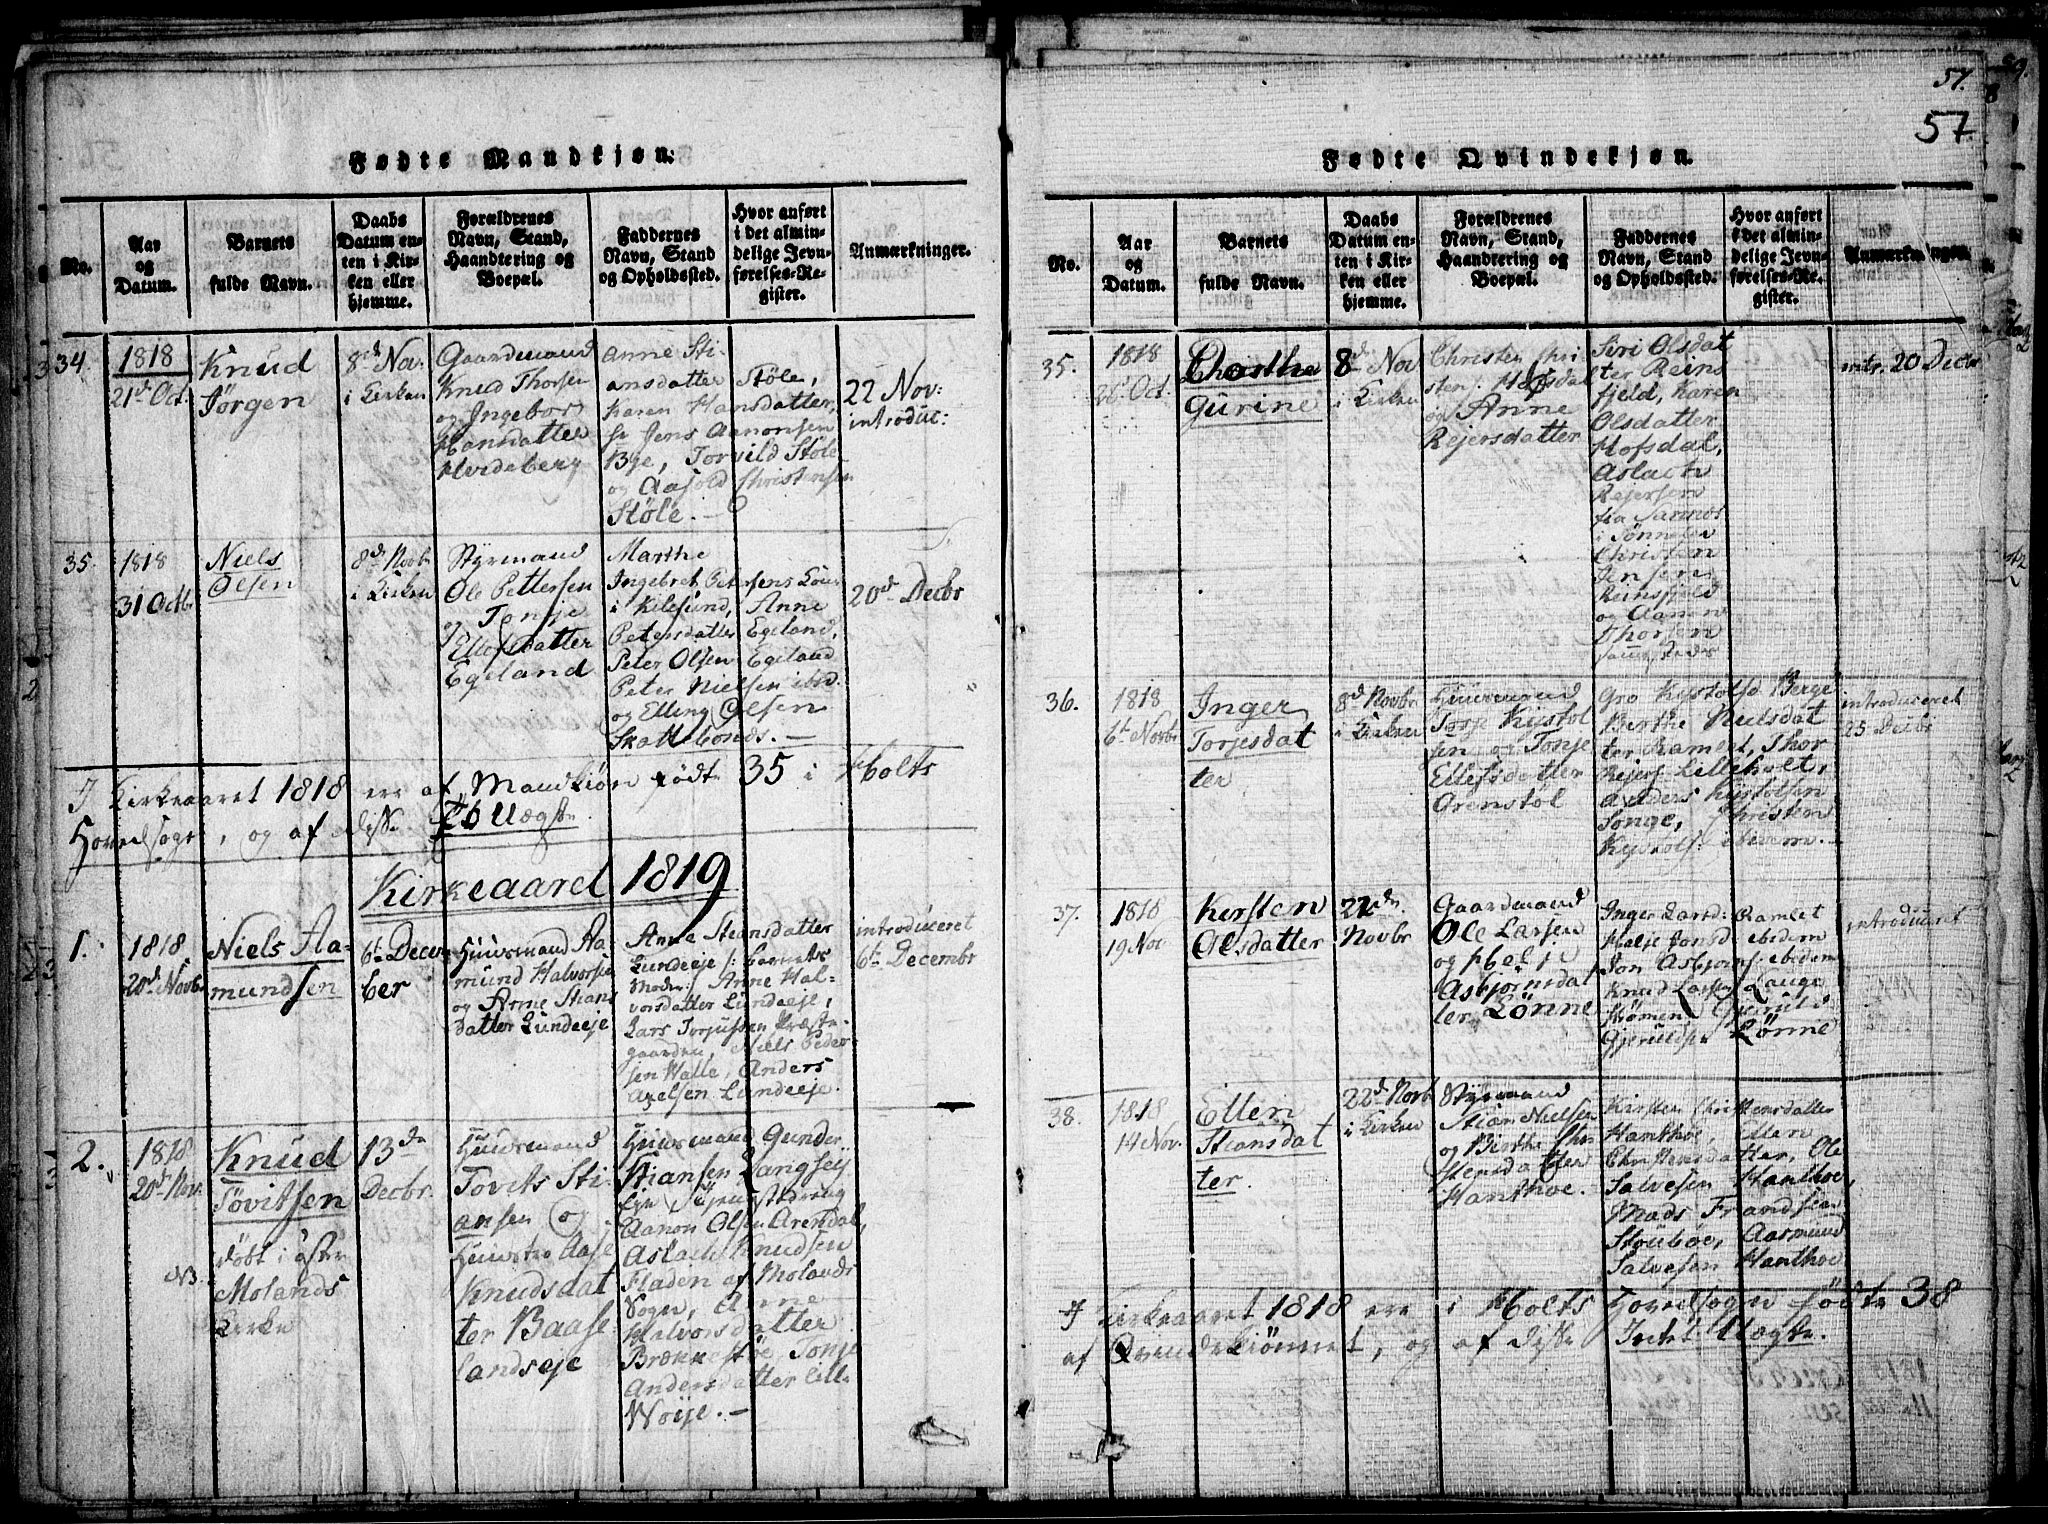 57.
57.
Fødte Mandkjøn:
No.
Aar
og
Datum.
Barnets
fulde Navn.
Daabs
Datum en-
ten i Kir-
ken eller
hjemme.
Forældrenes
Navn, Stand,
Haandtering og
Boepæl.
Faddernes
Navn, Stand
og Opholdssted.
Hvor anført
i det almin-
delige Jevn-
førelses-Re-
gister.
Anmærkninger.
34.
1818
21d Oct:
Knud
Jörgen
8d Nov:
i Kirken
Gaardmand
Knud Thorsen
og Ingebor
Hansdatter
Hvideberg
Anne Sti-
ansdatter Stöle,
Karen Hansdatter,
Jens Aanonsen
Bye, Torvild Stöle
og Aasold Christensen
Stöle. —
22 Nov:
introduc:
35.
1818
31 Octbr
Niels
Olsen
8d Novbr
i Kirken
Styrmand
Ole Pettersen
og Tonje
Ellefsdatter
Egeland
Marthe
Ingebret Petersens Kone
i Kilesund, Anne
Petersdatter Egeland,
Peter Olsen Egeland
Peter Nielsen ibid.
og Elling Olsen
Skattebonds. —
20d Decbr
I Kirkeaaret 1818 ere af Mandkiön födte 35 i Holts
Hovedsogn, og af disse Uægte.
Kirkeaaret 1819
1.
1818
20d Novbr
Niels Aa-
mundsen
6te Decem-
ber
Huusmand Aa
mund Halvorsen
og Anne Stians
datter Lundeeje
Anne Stiansdatter
Lundeeje /: barnets
Moder:/ Anne Hal-
vorsdatter Lundeeje,
Lars Torjussen Præste-
gaarden, Niels Peder-
sen Walle, Anders
Axelsen Lundeeje.
introduceret
6te Decembr
2.
1818
20d Nov.
Knud
Tovitsen
döbt i öster
NB.
Molands
Kirke
13de
Decbr.
Huusmand
Tovits Sti-
ansen og
Hustro Aase
Knudsdat
ter Baase
landseje
Huusmand Gunder
Stiansen Langsey
Eje,
Aanon Olsen Arendal,
Aslach Knudsen
Fladen af Molands
Sogn, Anne
Halvorsdatter
Brækkestöe Tonje
Andersdatter Lille
Woije. —
Fødte Qvindekjøn.
No.
Aar
og
Datum.
Barnets
fulde Navn.
Daabs
Datum en-
ten i Kir-
ken eller
hjemme.
Forældrenes
Navn, Stand,
Haandtering og
Boepæl.
Faddernes
Navn, Stand
og Opholdssted.
Hvor anført
i det almin-
delige Jevn-
førelses-Re-
gister.
Anmærkninger.
35.
1818
26d Oct.
Dorthe
Gurine
8d Nov
i Kirken
Christen Chri
stens: Hofsdal
og Anne
Rejersdatter
Siri Olsdat
ter Reins
fjeld, Karen
Olsdatter
Hofsdal,
Aslach
Rejersen
fra Sannæs
i Tönnes
Christen
Jensen
Reinsfjeld
og Aamn
Thorsen
sammesteds
intr. 20 Decbr
36.
1818
6te Novbr
Inger
Torjesdat
ter
8d Novbr
i Kirken
Huusmand
Torje Kystol
sen og Tonje
Ellefsdatter
Grenstöl
Gro Kystolsd Berge
Berthe Nielsdat
ter Ramlet, Thor
Rejers: Lilleholt,
Anders Kystolsen
Songe, Christen
Kystols: ibidem. —
introduceret
25 Decbr
37.
1818
19 Nov
Kirsten
Olsdatter
22de
Novbr
Gaardmand
Ole Larsen
og Helje
Asbjörnsdat
ter Lönne
Inger Larsd: Ramlet
Helje Jonsd ibidem
Jon Asbjörns: ibidem
Knud Larsen Lauge
Strömen Gjeruld
Gjeruldsen Lönne
introduceret
38.
1818
14 Nov.
Ellen
Stiansdat
ter.
22d Novbr
i Kirken
Styrmand
Stian Nielsen
og Birthe Chri
stensdatter
Hanthoe.
Kirsten Christensdatter
Hanthoe, Ellen
Christensdatter, Ole
Salvesen Hanthoe,
Mads Frandsen
Stouböe, Aasmund
Salvesen Hanthoe
I Kirkeaaret 1818 ere i Holts Hovedsogn födte 38
af Qvindekiönnet, og af disse Intet Uægte.